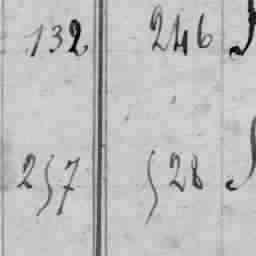 132 246
257 528